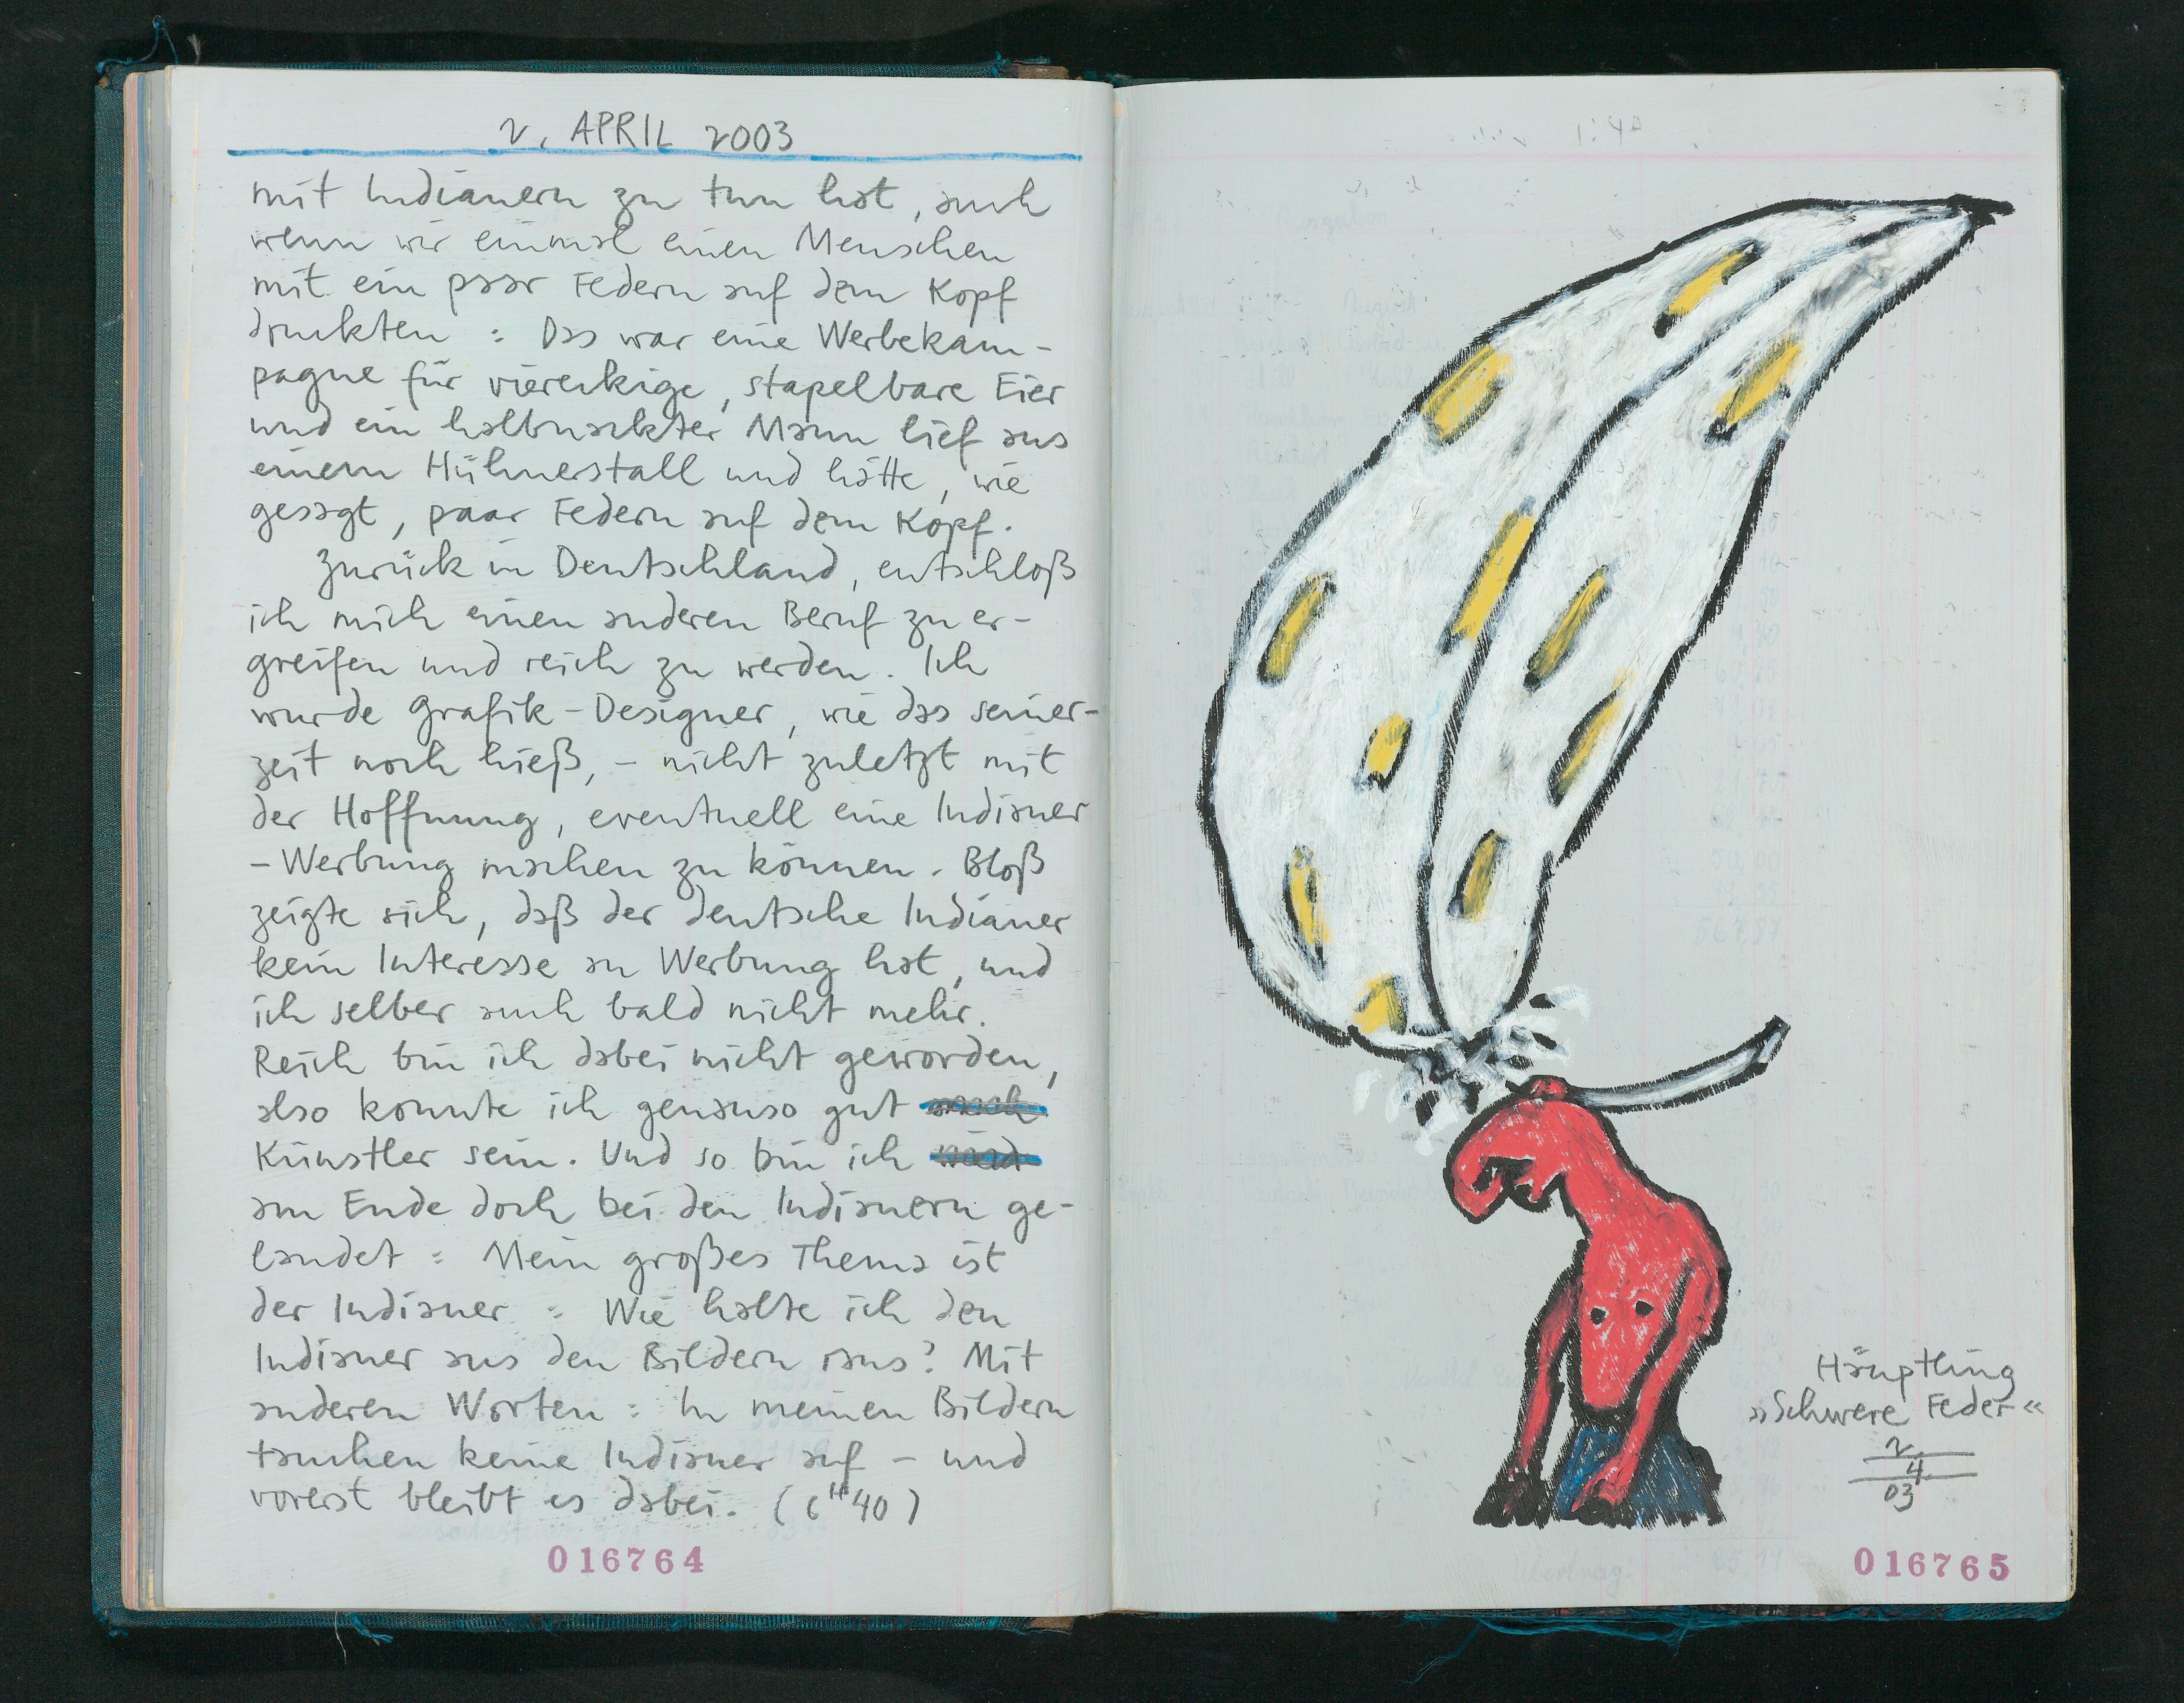 2. APRIL 2003
mit Indianern zu tun hat, auch
wenn wir einmal einen Menschen
mit ein paar Federn auf dem Kopf
druckten : Das war eine Werbekam-
pagne für viereckige, stapelbare Eier
und ein halbnackter Mann lief aus
einem Hühnerstall und hatte, wie
gesagt, paar Federn auf dem Kopf.
Zurück in Deutschland, entschloß
ich mich einen anderen Beruf zu er-
greifen und reich zu werden. Ich
wurde Grafik-Designer, wie das seiner-
zeit noch hieß, - nicht zuletzt mit
der Hoffnung, eventuell eine Indianer
-Werbung machen zu können. Bloß
zeigte sich, daß der deutsche Indianer
kein Interesse an Werbung hat, und
ich selber auch bald nicht mehr.
Reich bin ich dabei nicht geworden,
also konnte ich genauso gut
Künstler sein. Und so bin ich
am Ende doch bei den Indianern ge-
landet : Mein großes Thema ist
der Indianer : Wie halte ich den
Indianer aus den Bildern raus? Mit
anderen Worten : In meinen Bildern
tauchen keine Indianer auf - und
vorerst bleibt es dabei. (6H40)
016764
Häuptling
»Schwere Feder«
2
4
03
016765